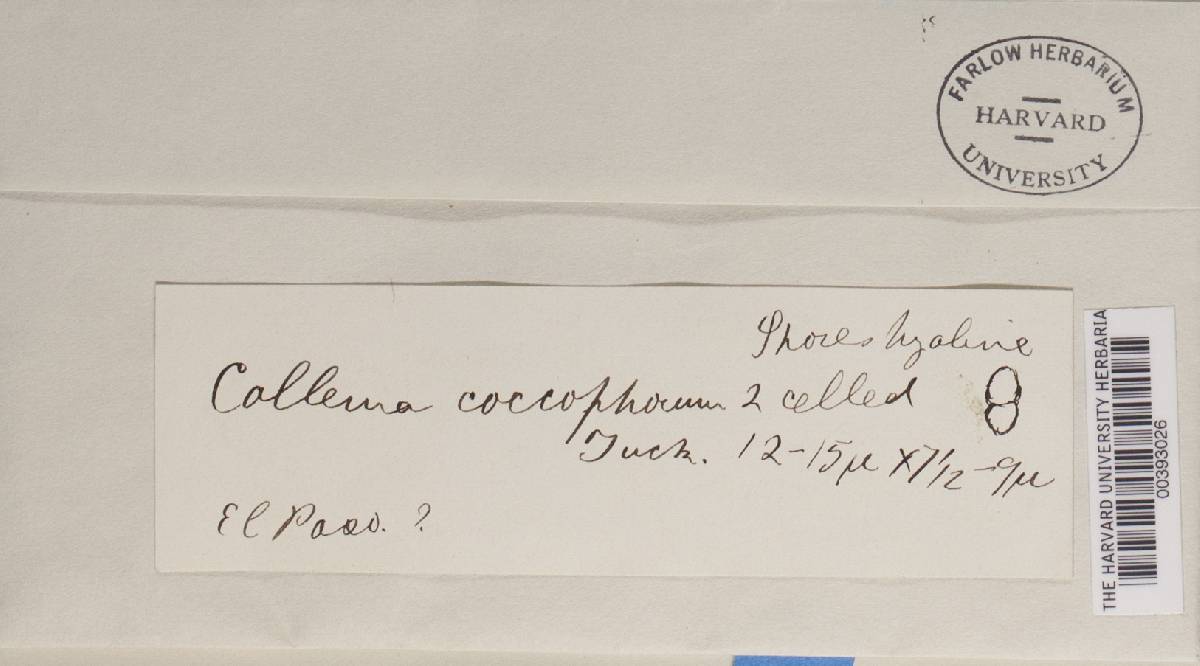 FARLOW HERBARIUM
HARVARD
UNIVERSITY
Spores hyaline
Collema coccophorum 2 celled
Tuck. 12-15µ X 7½-9µ
El Paso. ?
THE HARVARD UNIVERSITY HERBARIA
00393026